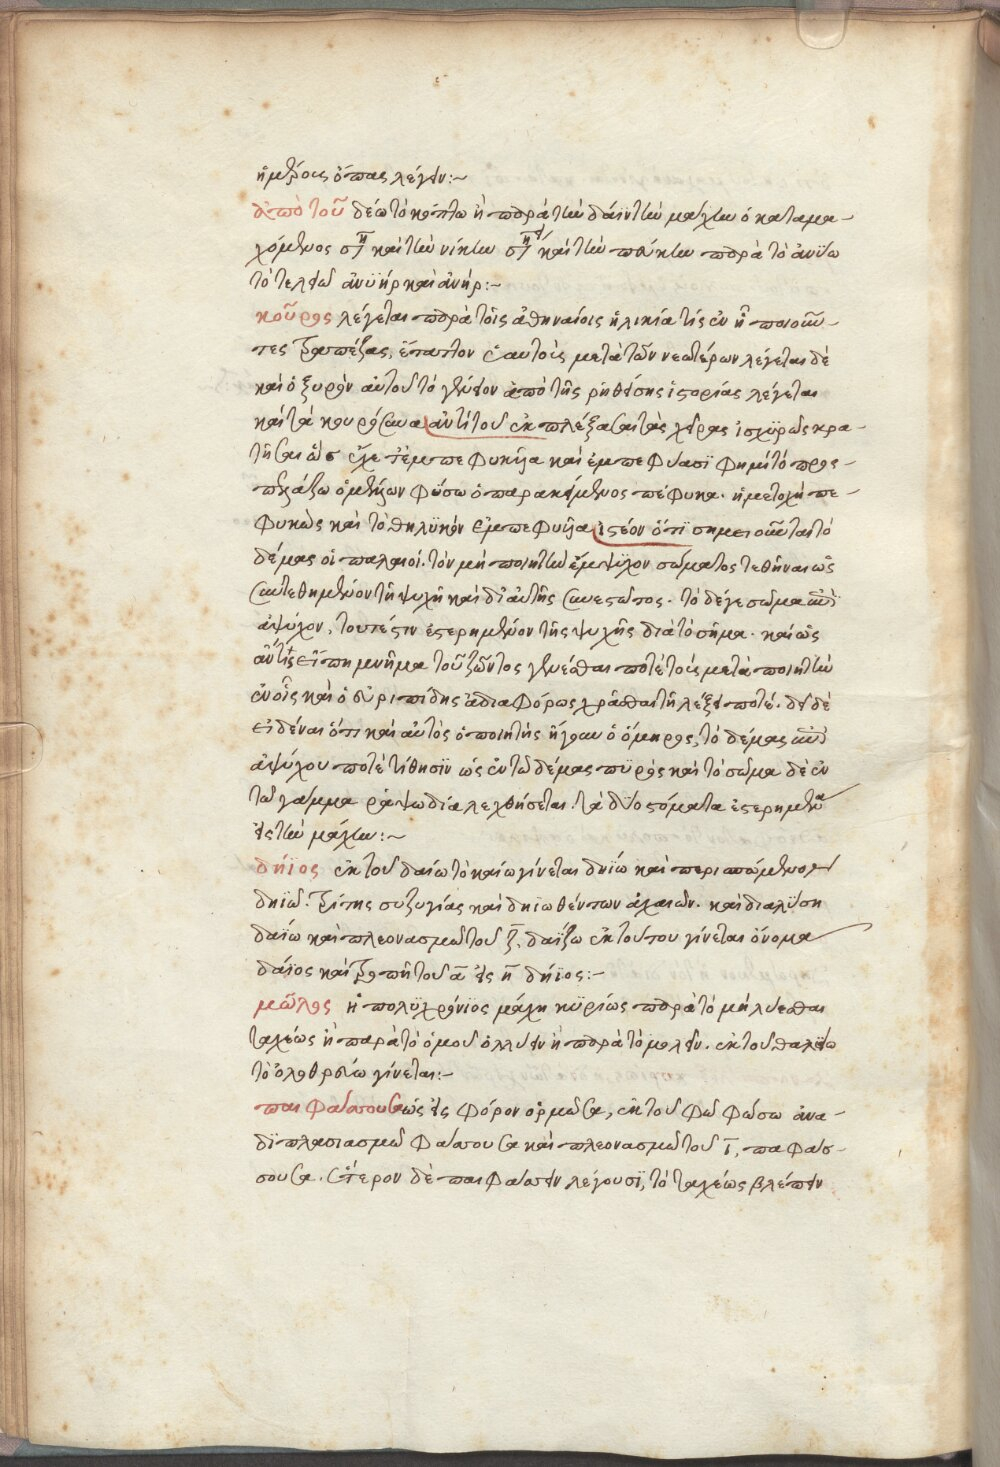 ἡμέροις ὄπας λέγειν:~
ἀπὸ τοῦ δέω τὸ κόπτω ἢ παρὰ τὴν δάϊν τὴν μάχην ὁ καταμα-
χόμενος καὶ τὴν νίκην καὶ τὴν παρὰ τὸ ἀνύω
τὸ τελειῶ ἀνυὴρ καὶ ἀνήρ:~
κοῦρος λέγεται παρὰ τοῖς ἀθηναίοις ἡλικία τίς ἐν ᾗ ποιοῦν-
τες τραπέζας, ἔπαιζον ἑαυτοῖς μετὰ τῶν νεωτέρων λέγεται δὲ
καὶ ὁ ξυρὸν αὐτοῦ τὸ γένειον ἀπὸ τῆς ῥηθείσης ἱστορίας λέγεται
καὶ τὰ κουρόσυνα ἀντὶ τοῦ ἐκπλέξασα τὰς χεῖρας ἰσχυρῶς κρα-
τῆσαι ὣς ἔχετ' ἐμπεφυκῖα καὶ ἐμπεφύασι φημὶ τὸ προσ-
πελάζω ὁ μέλλων φύσω ὁ παρακείμενος πέφυκα. ἡ μετοχὴ πε-
φυκὼς καὶ τὸ θηλυκὸν ἐμπεφυῖα ἰστέον ὅτι σημειοῦνται τὸ
δέμας οἱ παλαιοί. τὸν μὴ ποιητὴν ἔμψυχον σώματος τεθῆναι ὡς
συντεθημένον τῇ ψυχῇ καὶ δι' αὐτῆς συνεστῶτος. τὸ δέ γε σῶμα ἀντὶ
ἀψύχου, τουτέστιν ἐστερημένον τῆς ψυχῆς διὰ τὸ σῆμα. καὶ ὡς
ἄν τις εἴπῃ μνῆμα τοῦ ζῶντος γενέσθαι ποτὲ τοῖς μετὰ ποιητὴν
ἐν οἷς καὶ ὁ εὐριπίδης ἀδιαφόρως χρᾶσθαι τῇ λέξει ποτέ. δεῖ δὲ
εἰδέναι ὅτι καὶ αὐτὸς ὁ ποιητὴς ἤγουν ὁ ὅμηρος, τὸ δέμας ἀντὶ
ἀψύχου ποτὲ τίθησιν ὡς ἐν τῷ δέμας πυρός καὶ τὸ σῶμα δὲ ἐν
τῷ γάμμα ῥαψωδία λεχθήσεται. τὰ δύο στόματα ἐστερημένα
εἰς τὴν μάχην:~
δήϊος ἐκ τοῦ δαίω τὸ καίω γίνεται δηίω καὶ περισπώμενον
δηιῶ. τρίτης συζυγίας καὶ δηϊωθέντων ἀχαιῶν. καὶ διαλύσει
δαΐω καὶ πλεονασμῷ τοῦ ζ, δαΐζω ἐκ τούτου γίνεται ὄνομα
δάϊος καὶ τροπῇ τοῦ α εἰς η δήϊος:~
μῶλος ἡ πολυχρόνιος μάχη κυρίως παρὰ τὸ μὴ λύεσθαι
ταχέως ἢ παρὰ τὸ ὁμοῦ ὀλλύειν ἢ παρὰ τὸ μολεῖν. ἐκ τοῦ
τὸ ὀλοθρεύω γίνεται:~
παιφάσσουσα ὡς εἰς φόρον ὁρμῶσα, ἐκ τοῦ φῶ φάσω ἀνα-
διπλασιασμῷ φάσσουσα καὶ πλεονασμῷ τοῦ ι, παιφάσ-
σουσα. ἕτερον δὲ παιφάσσειν λέγουσι, τὸ ταχέως βλέπειν